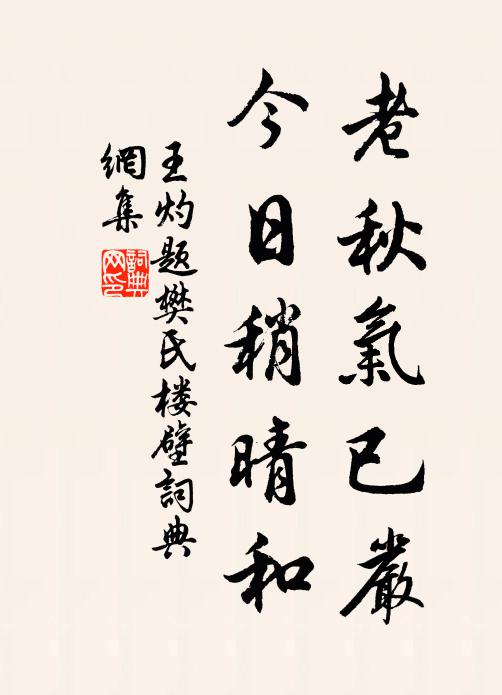 老秋氣已嚴
今日稍晴和
王灼题樊氏楼壁詞典
網集
詞典
网印